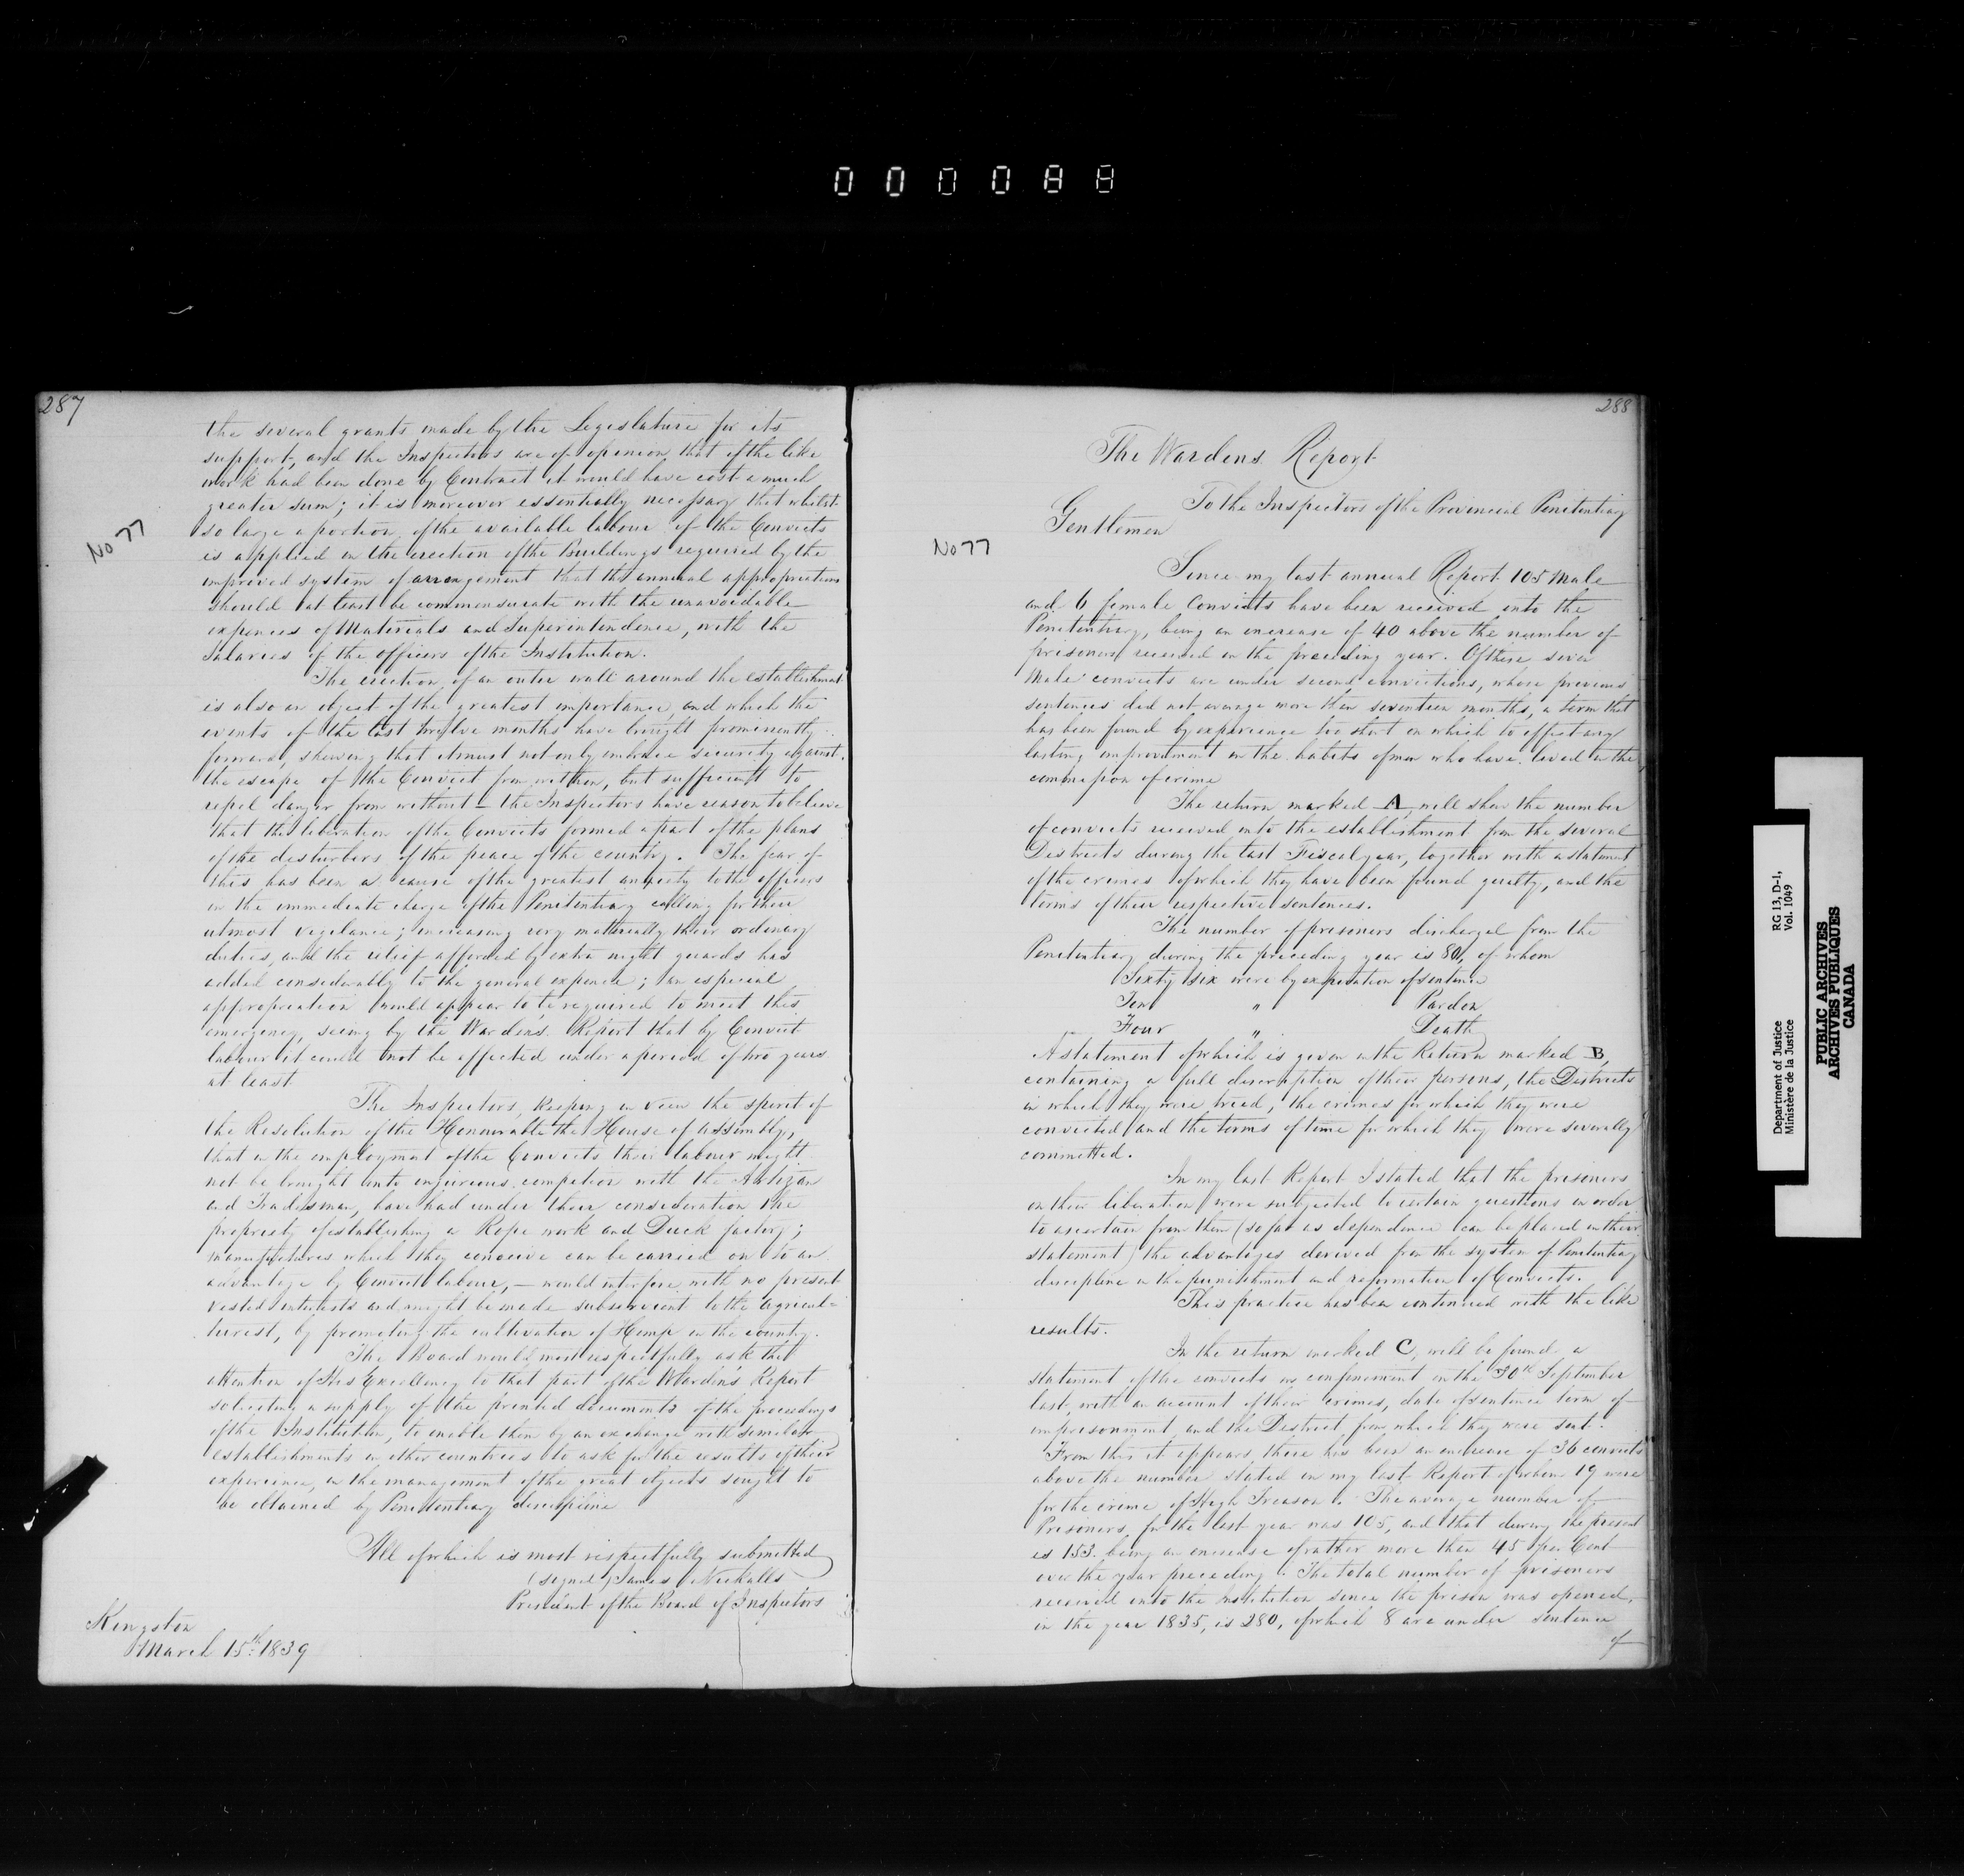 000088
287
the several grants made by the Legislature for its
support, and the Inspectors are of opinion that if the like
work had been done by Contract it would have cost a much
greater sum; it is moreover essentially necessary that whilst
so large a portion of the available labour of the Convicts
is applied in the erection of the Buildings required by the
improved system of arrangement that the annual appropriations
should at least be commensurate with the unavoidable
expences of Materials and Superintendence, with the
Salaries of the officers of the Institution.
The erection of an outer wall around the establishment
is also an object of the greatest importance, and which the
events of the last twelve months have brought prominently
forward, shewing that it must not only embrace security against
the escape of the Convict from within, but sufficient to
repel danger from without – the Inspectors have reason to believe
that the liberation of the Convicts formed a part of the plans
of the disturbers of the peace of the country. The fear of
this has been a cause of the greatest anxiety to the officers
in the immediate charge of the Penitentiary calling for their
utmost vigilance; increasing very materially their ordinary
duties, and the relief afforded by extra night guards has
added considerably to the general expence; an especial
appropriation would appear to be required to meet this
emergency, seeing by the Wardens Report that by Convict
labour it could not be effected under a period of two years
at least.
The Inspectors, keeping in view the spirit of
the Resolution of the Honourable the House of Assembly,
that in the employment of the Convicts their labour might
not be brought into injurious competion with the Artizan
and Tradesman, have had under their consideration the
propriety of establishing a Rope work and Duck factory;
manufactures which they conceive can be carried on to an
advantage by Convict labour, – would interfere with no present
vested interests and might be made subservient to the agricul=
turist, by promoting the cultivation of Hemp in the country.
The Board would most respectfully ask the
attention of His Excellency to that part of the Warden's Report
soliciting a supply of the printed documents of the proceedings
of the Institution, to enable them by an exchange with similar
establishments in other countries to ask for the results of their
experience, in the management of the great objects sought to
be obtained by Penitentiary discipline
All of which is most respectfully submitted
(signed) James Nickalls
President of the Board of Inspectors
Kingston
March 15th 1839
No 77
288
The Wardens Report
To the Inspectors of the Provincial Penitentiary
Gentlemen
No 77
Since my last annual Report 105 Male
and 6 female Convicts have been received into the
Penitentiary, being an increase of 40 above the number of
prisoners received in the preceding year. Of these seven
Male convicts are under second convictions, whose previous
sentences did not average more than seventeen months, a term that
has been found by experience too short in which to effect any
lasting improvement in the habits of men who have lived in the
commission of crime
The return marked A, will show the number
of convicts received into the establishment from the several
Districts during the last Fiscal year, together with a statement
of the crimes of which they have been found guilty, and the
terms of their respective sentences.
The number of prisoners discharged from the
Penitentiary during the preceding year is 80, of whom
Sixty six were by expiration of sentence
Ten " Pardon
Four " Death
A statement of which is given in the Return marked B,
containing a full description of their persons, the Districts
in which they were tried, the crimes for which they were
convicted and the terms of time for which they were severally
committed.
In my last Report I stated that the prisoners
on their liberation were subjected to certain questions in order
to ascertain from them (so far as dependence can be placed in their
statement) the advantages derived from the system of Penitentiary
discipline in the punishment and reformation of Convicts.
This practice has been continued with the like
results.
In the return marked C, will be found a
statement of the convicts in confinement on the 30th September
last, with an account of their crimes, date of sentence term of
imprisonment, and the District from which they were sent.
From this it appears there has been an increase of 36 convicts
above the number stated in my last Report of whom 19 were
for the crime of High Treason. The average number of
Prisoners for the last year was 105, and that during the present
is 153. being an increase of rather more than 45 per Cent
over the year preceding. The total number of prisoners
received into the institution since the prison was opened,
in the year 1835, is 280, of which 8 are under sentence
of
Department of Justice
Ministère de la Justice
RG 13, D-1,
Vol. 1049
PUBLIC ARCHIVES
ARCHIVES PUBLIQUES
CANADA